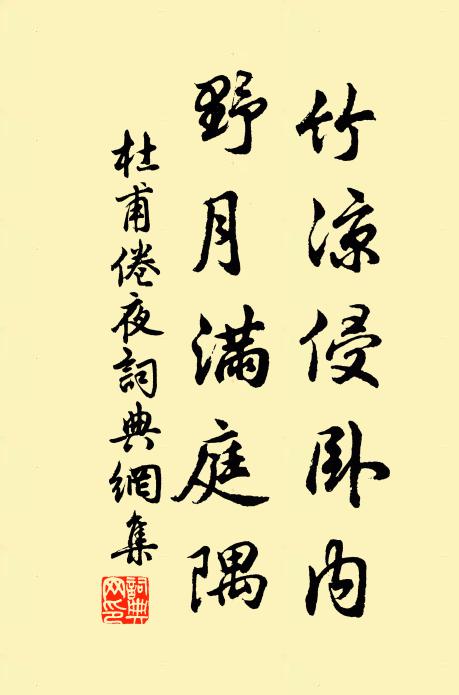 竹凉侵卧内
野月满庭隅
杜甫倦夜詞典網集
詞典網印